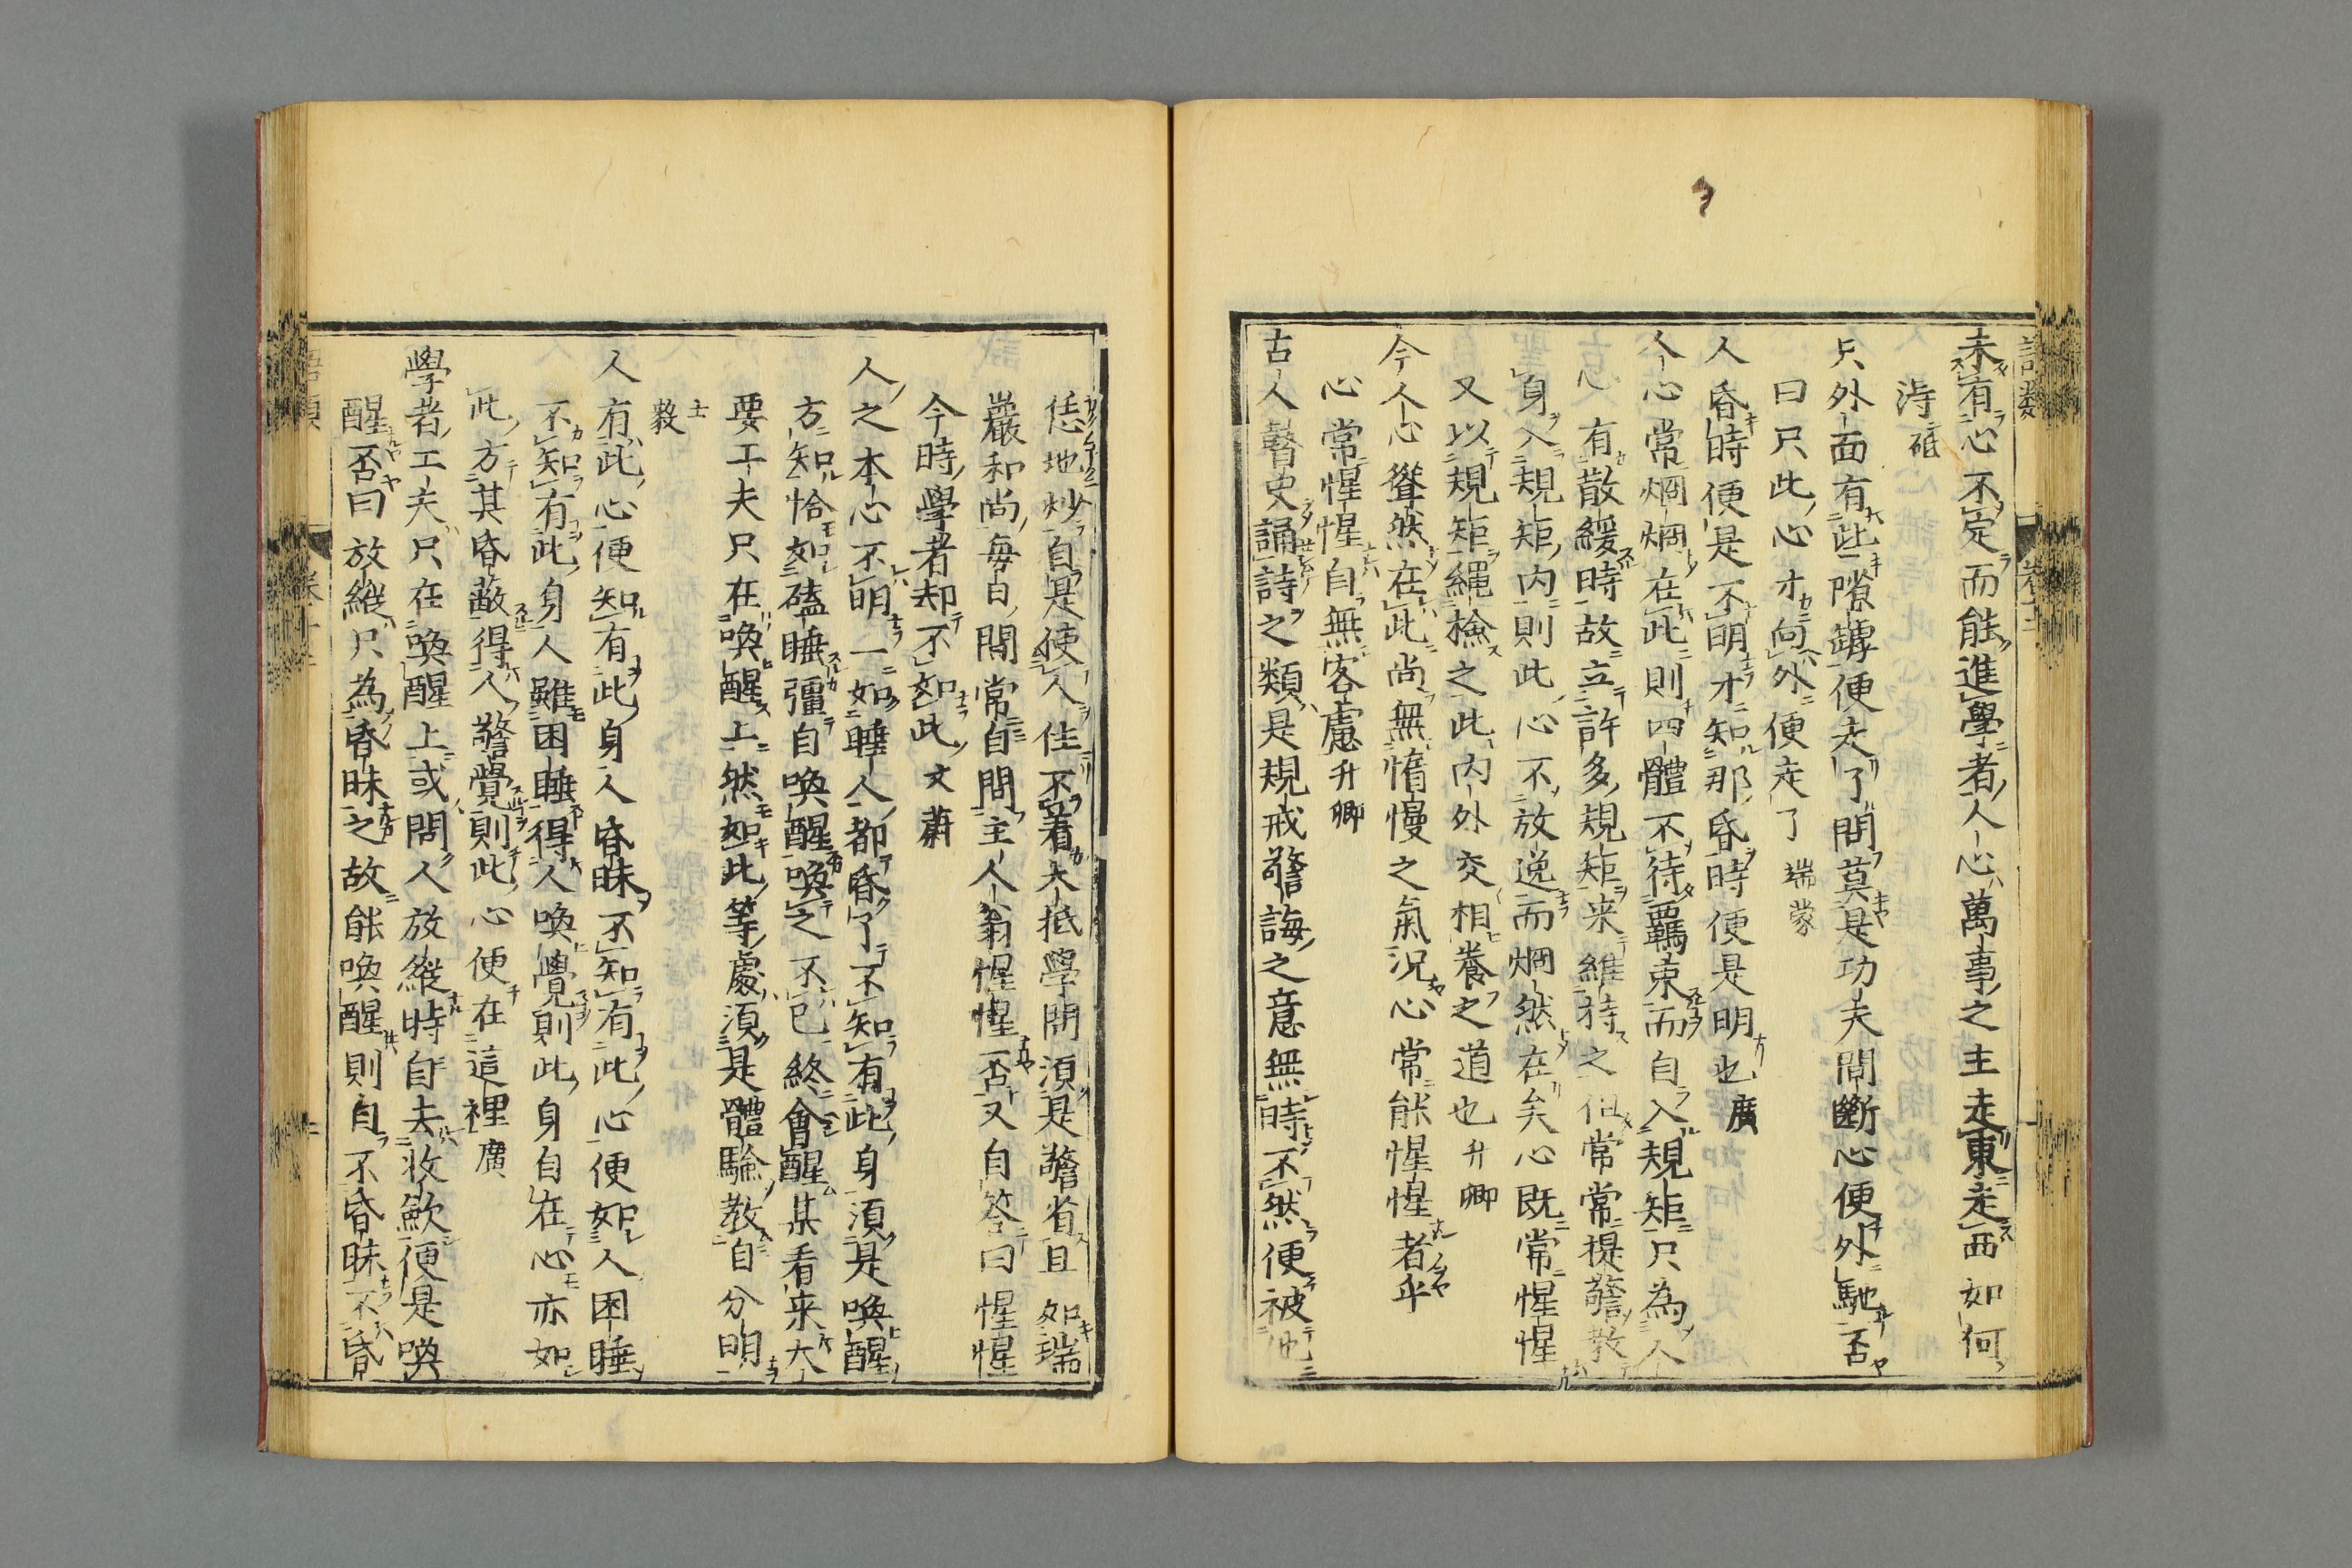 未有心不定而能進學者人心萬事之主走東走西如何
淂砥
只外面有些隙罅便走了問莫是功夫間斷心便外馳否
曰只此心才向外便走了端蒙
人昏時便是不明才知那昏時便是明也廣
人心常烱烱在此則四體不待羈束而自入規矩只為人
心有散緩時故立許多規矩来維持之但常常提警教
身入規矩内則此心不放逸而烱然在矣心既常惺惺
又以規矩繩檢之此内外交相養之道也升卿
今人心聳然在此尚無惰慢之氣况心常能惺惺者乎
心常惺惺自無客慮升卿
古人瞽史誦詩之類是規戒警誨之意無時不然便被他
恁地炒自是使人住不著大抵學問須是警省且如瑞
巖和尚每日間常自問主人翁惺惺否又自答曰惺惺
今時學者却不如此文蔚
人之本心不明一如睡人都昏了不知有此身須是喚醒
方知恰如磕睡彊自喚醒喚之不已終會醒某看来大
要工夫只在喚醒上然如此等處須是體驗教自分明
士毅
人有此心便知有此身人昏昧不知有此心便如人困睡
不知有此身人雖困睡得人喚覺則此身自在心亦如
此方其昏蔽得人警覺則此心便在這裡廣
學者工夫只在喚醒上或問人放縱時自去收歛便是喚
醒否曰放縱只為昏昧之故能喚醒則自不昏昧不昏